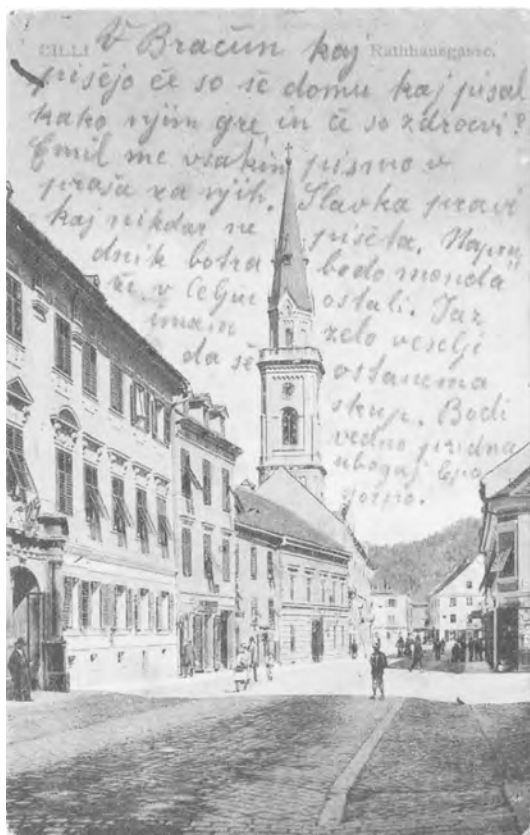 CILLI Rathhausgasse.
V Bračun kaj
pišejo če so še domu kaj pisal
kako njim gre, in če so zdravi?
Emil me vsakim pismo v
praša za njih. Slavka pravi
kaj nikdar ne pišeta.
dnik botra bodo monda
že v Celju ostali. Jaz
imam zelo veselje
da še ostanema
skup. Bodi
vedno pridna
ubogaj